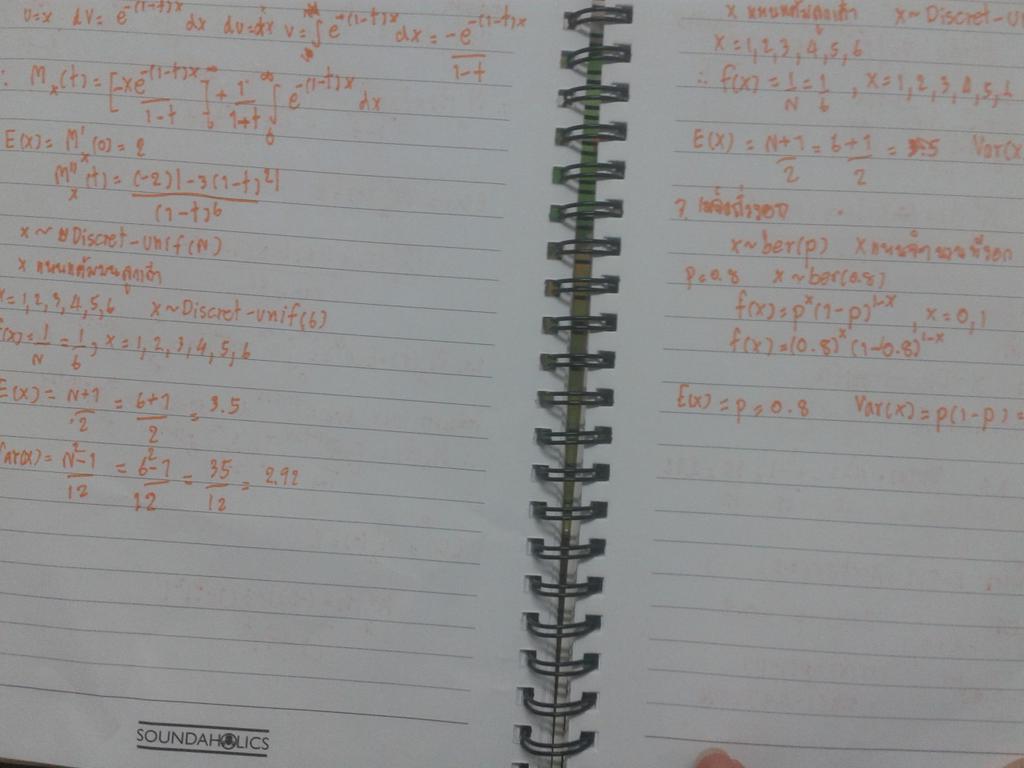 u=x dv= e^-(1-t)x dx du=dx v=∫e^-(1-t)x dx = -e^-(1-t)x / 1-t
∴ M_x(t) = [-xe^-(1-t)x / 1-t] + 1/1+t ∫ e^-(1-t)x dx
E(x) = M'_x(0) = 2
M''_x(t) = (-2)|-3(1-t)^2| / (1-t)^6
x ~ Discret-unif(N)
x แทนแต้มบนลูกเต๋า
x=1,2,3,4,5,6 x~Discret-unif(6)
f(x) = 1/N = 1/6, x=1,2,3,4,5,6
E(x) = N+1/2 = 6+1/2 = 3.5
Var(x) = N^2-1/12 = 6^2-1/12 = 35/12 = 2.92
SOUNDAHOLICS
x แทนแต้มลูกเต๋า x~Discret-un
x=1,2,3,4,5,6
∴ f(x) = 1/N = 1/6, x=1,2,3,4,5,6
E(x) = N+1/2 = 6+1/2 = 3.5 Var(x
x~ber(p) x แทน
p=0.8 x~ber(0.8)
f(x)=p^x(1-p)^1-x, x=0,1
f(x)=(0.8)^x(1-0.8)^1-x
E(x) = p = 0.8 Var(x)=p(1-p)=